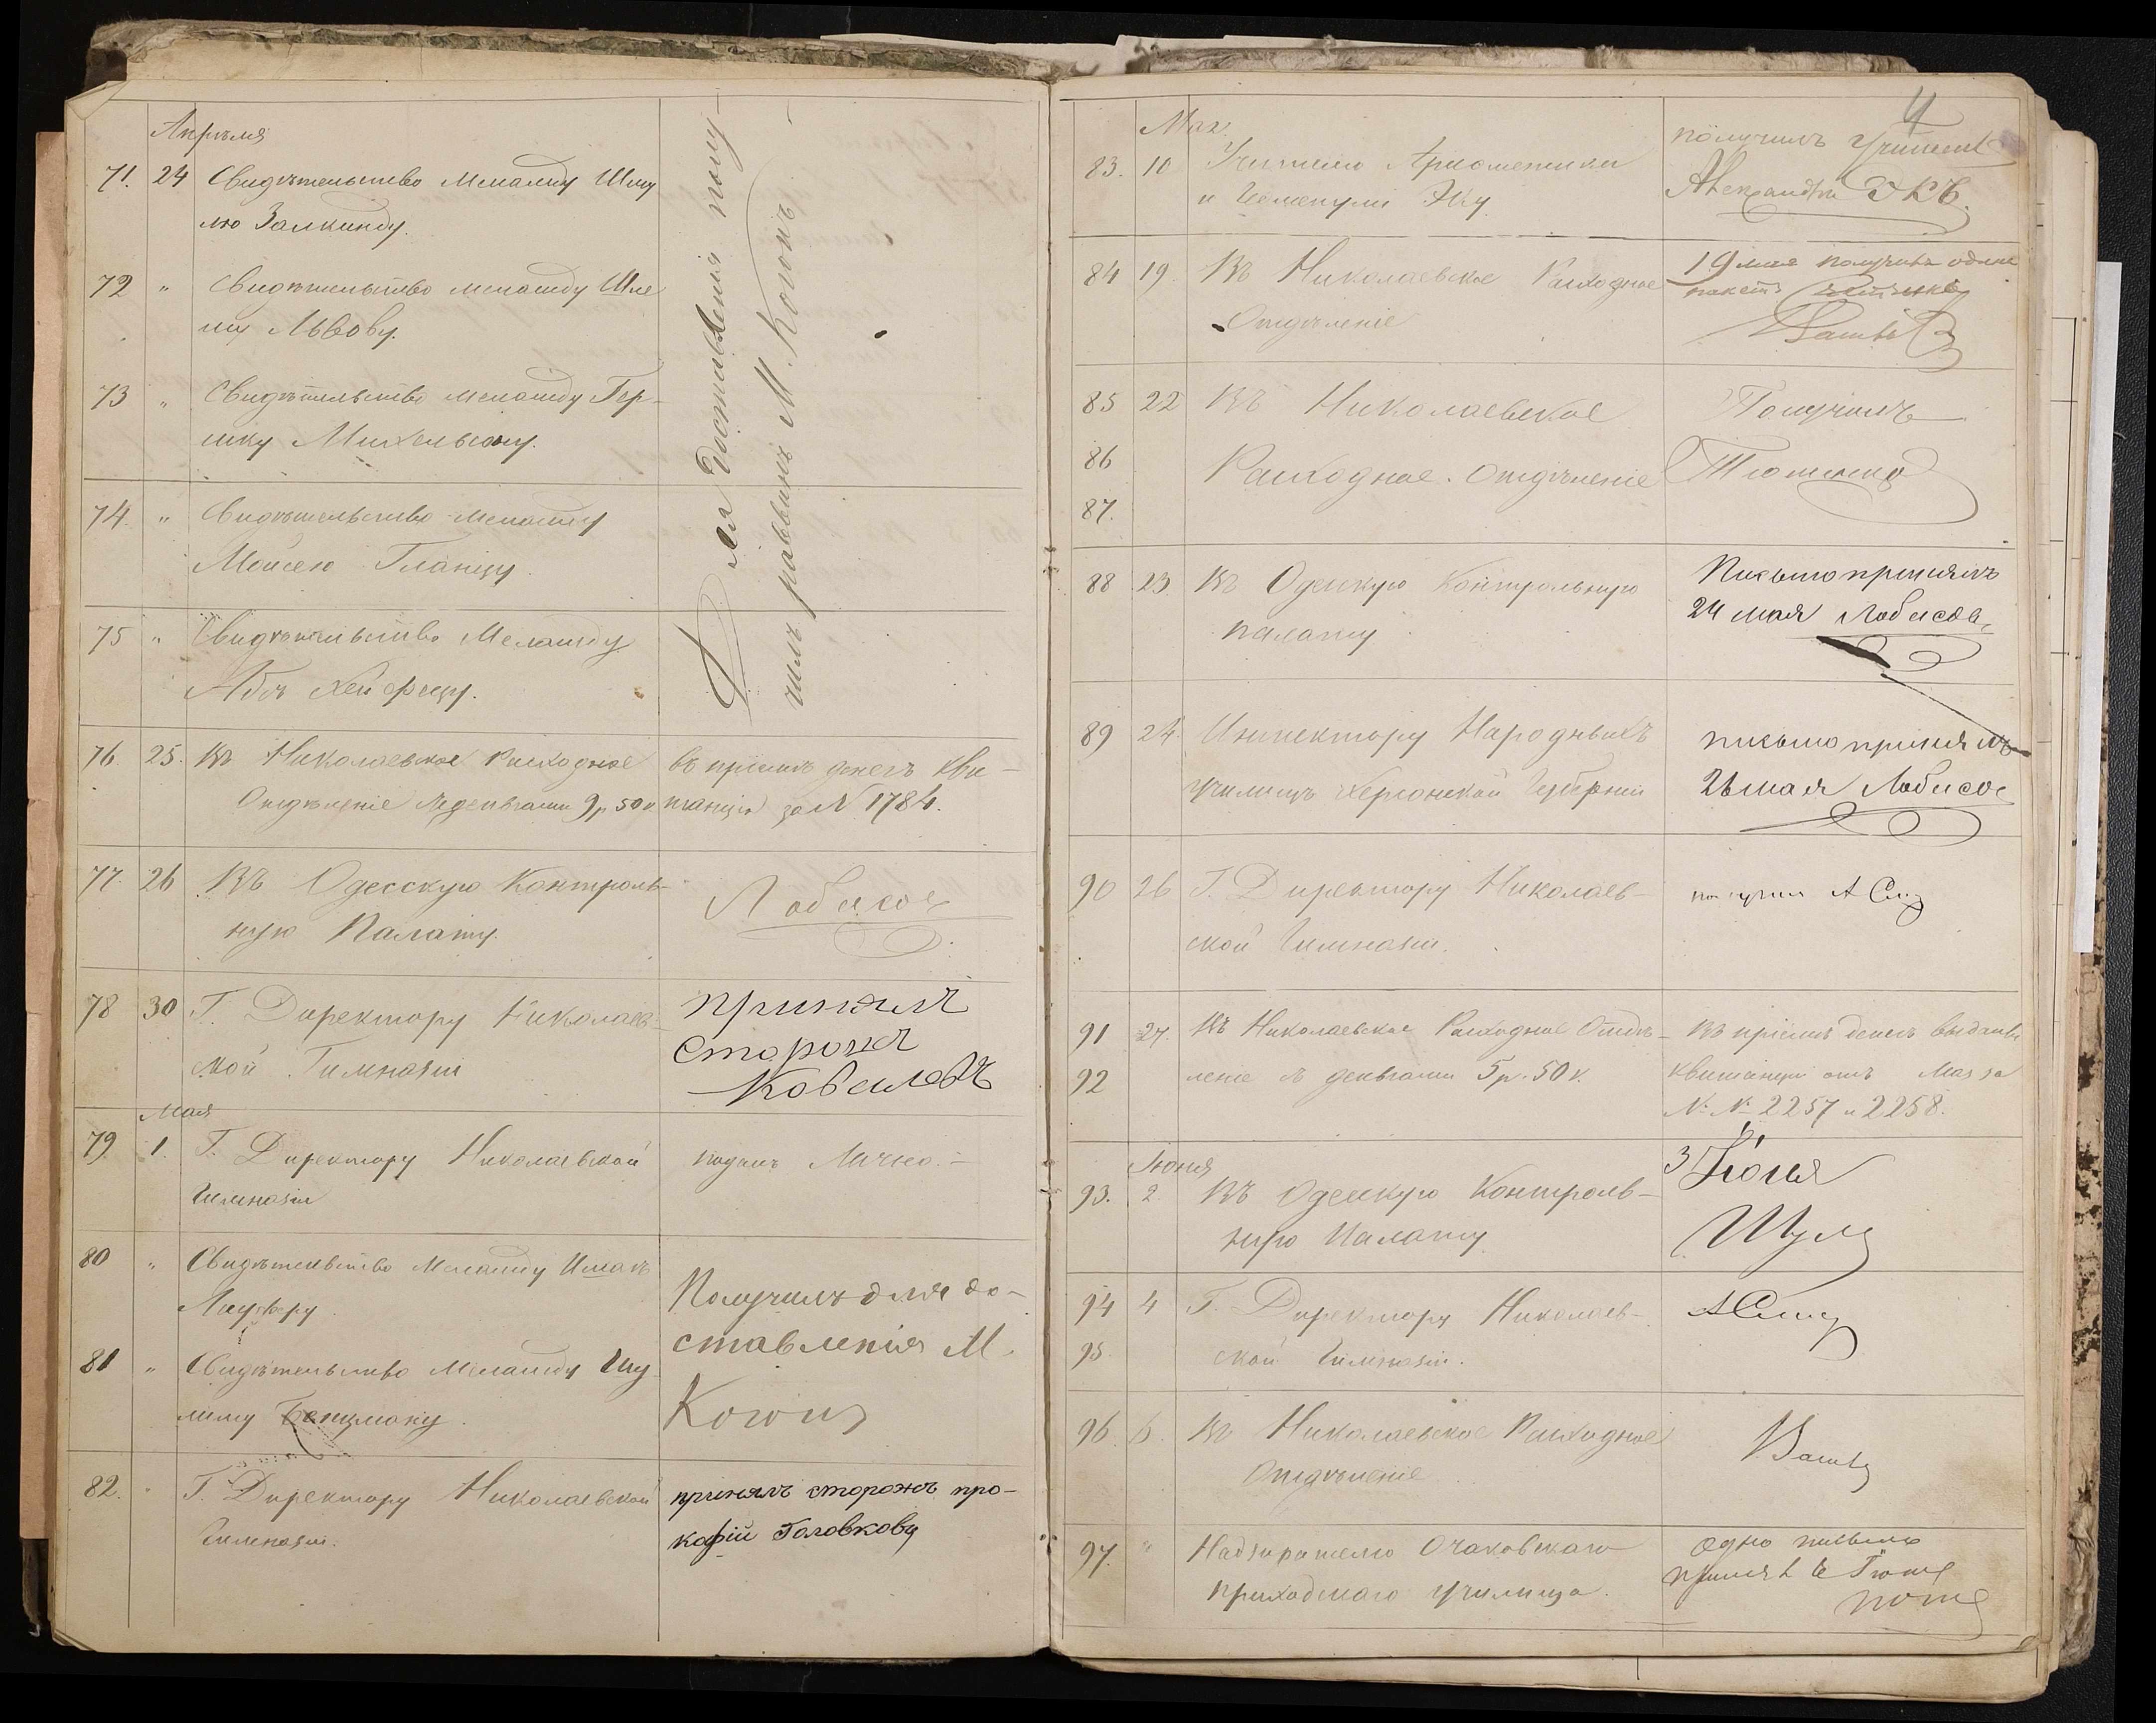 Апрѣля
71. 24 Свидѣтельство Меламду Шму
лю Залкинду.
72 " Свидѣтельство меламду Шле
му Львову.
73 " Свидѣтельство меламду Гер-
шку Михельсону.
74. " Свидѣтельство меламду
Мойсею Гланцу.
75 " Свидѣтельство Меламду
Абѣ Хейфецу.
Для доставленія полу-
чилъ раввинъ М. Когонъ
76. 25. Въ Николаевское Расходное
Отдѣленіе съ деньгами 9 р 50 к
въ пріемѣ денегъ кви-
танція за N 1784.
77. 26 Въ Одесскую Контроль-
ную Палату.
Лобасов
78 30 Г. Директору Николаев-
ской Гимназіи
принялъ
сторожъ
Мая
79. 1. Г. Директору Николаевской
Гимназіи
подалъ Лично. -
80 " Свидѣтельство Меламду Ицхакъ
Лауферу.
81 " Свидѣтельство Меламду Шу
лиму
Получилъ для до-
ставленія М.
Когонъ
82. " Г. Директору Николаевской
Гимназіи.
принялъ сторожъ про-
кофій Головковъ
4
Мая.
83. 10 Учителю Ариөметики
и Геометріи Эку
получилъ Учитель
Александръ Экъ.
84 19. Въ Николаевское Расходное
Отдѣленіе
19 мая получилъ одинъ
пакетъ
85 22 Въ Николаевское
86 Расходное Отдѣленіе
87.
Получилъ
88 23. Въ Одесскую Контрольную
палату
Письмо принялъ
24 мая Лобасовъ
89 24. Инспектору Народныхъ
училищъ Херсонской Губерніи
письмо принялъ
мая Лобасов
90 26 Г. Директору Николаев-
ской Гимназіи.
получил А
91 27. Въ Николаевское Расходное Отдѣ-
92 леніе съ деньгами 5 р. 50 к.
Въ пріемѣ денегъ выданы
квитанціи отъ Мая за
N. N 2257 и 2258.
Іюня
93. 2. Въ Одесскую Контроль-
ную Палату
3 Июня
94 4 Г. Директору Николаев-
95 ской Гимназіи.
96. 6. Въ Николаевское Расходное
Отдѣленіе
97. " Надзирателю Очаковскаго
приходскаго училища.
Одно письмо
принял